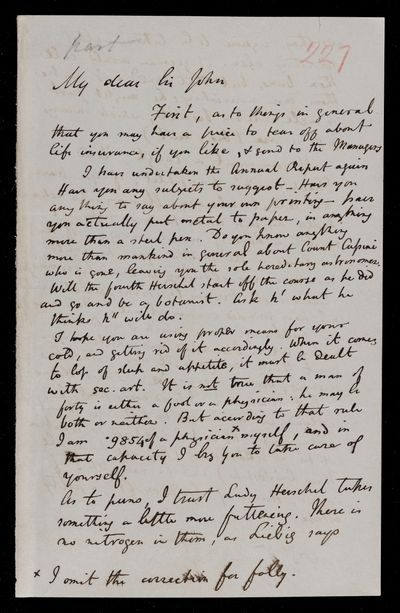 part
227
My dear Sir John
First, as to things in general
that you may have a piece to tear off about
life insurance, if you like, & send to the Managers
I have undertaken the Annual Report again
Have you any subjects to suggest - Have you
any thing to say about your own printing - have
you actually put metal to paper, in anything
more than a steel pen. Do you know anything
more than mankind in general about Count Cassini
who is gone, leaving you the sole hereditary astronomer.
Will the fourth Herschel start off the course as he did
and go and be a botanist. Ask h^r what he
thinks h^e will do.
I hope you are using proper means for your
cold, and getting rid of it accordingly. When it comes
to loss of sleep and appetite, it must be dealt
with sec. art. It is not true that a man of
forty is either a fool or a physician: he may be
both or neither. But according to that rule
I am .9854 of a physician x myself, and in
that capacity I beg you to take care of
yourself.
As to puns, I trust Lady Herschel takes
something a little more fattening. There is
no nitrogen in them, as Liebig says
x I omit the correction for folly.